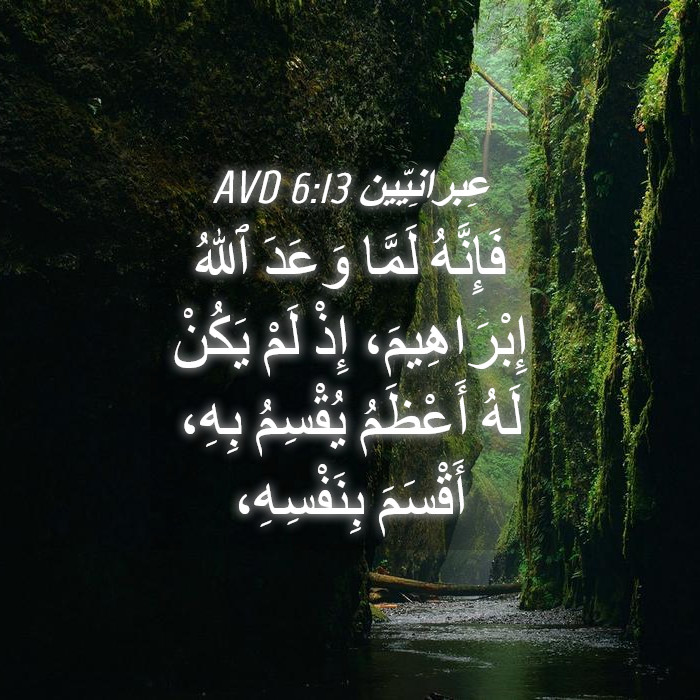 عِبرانِيّين 6:13 AVD
فَإِنَّهُ لَمَّا وَعَدَ ٱللهُ
إِبْرَاهِيمَ، إِذْ لَمْ يَكُنْ
لَهُ أَعْظَمُ يُقْسِمُ بِهِ،
أَقْسَمَ بِنَفْسِهِ،